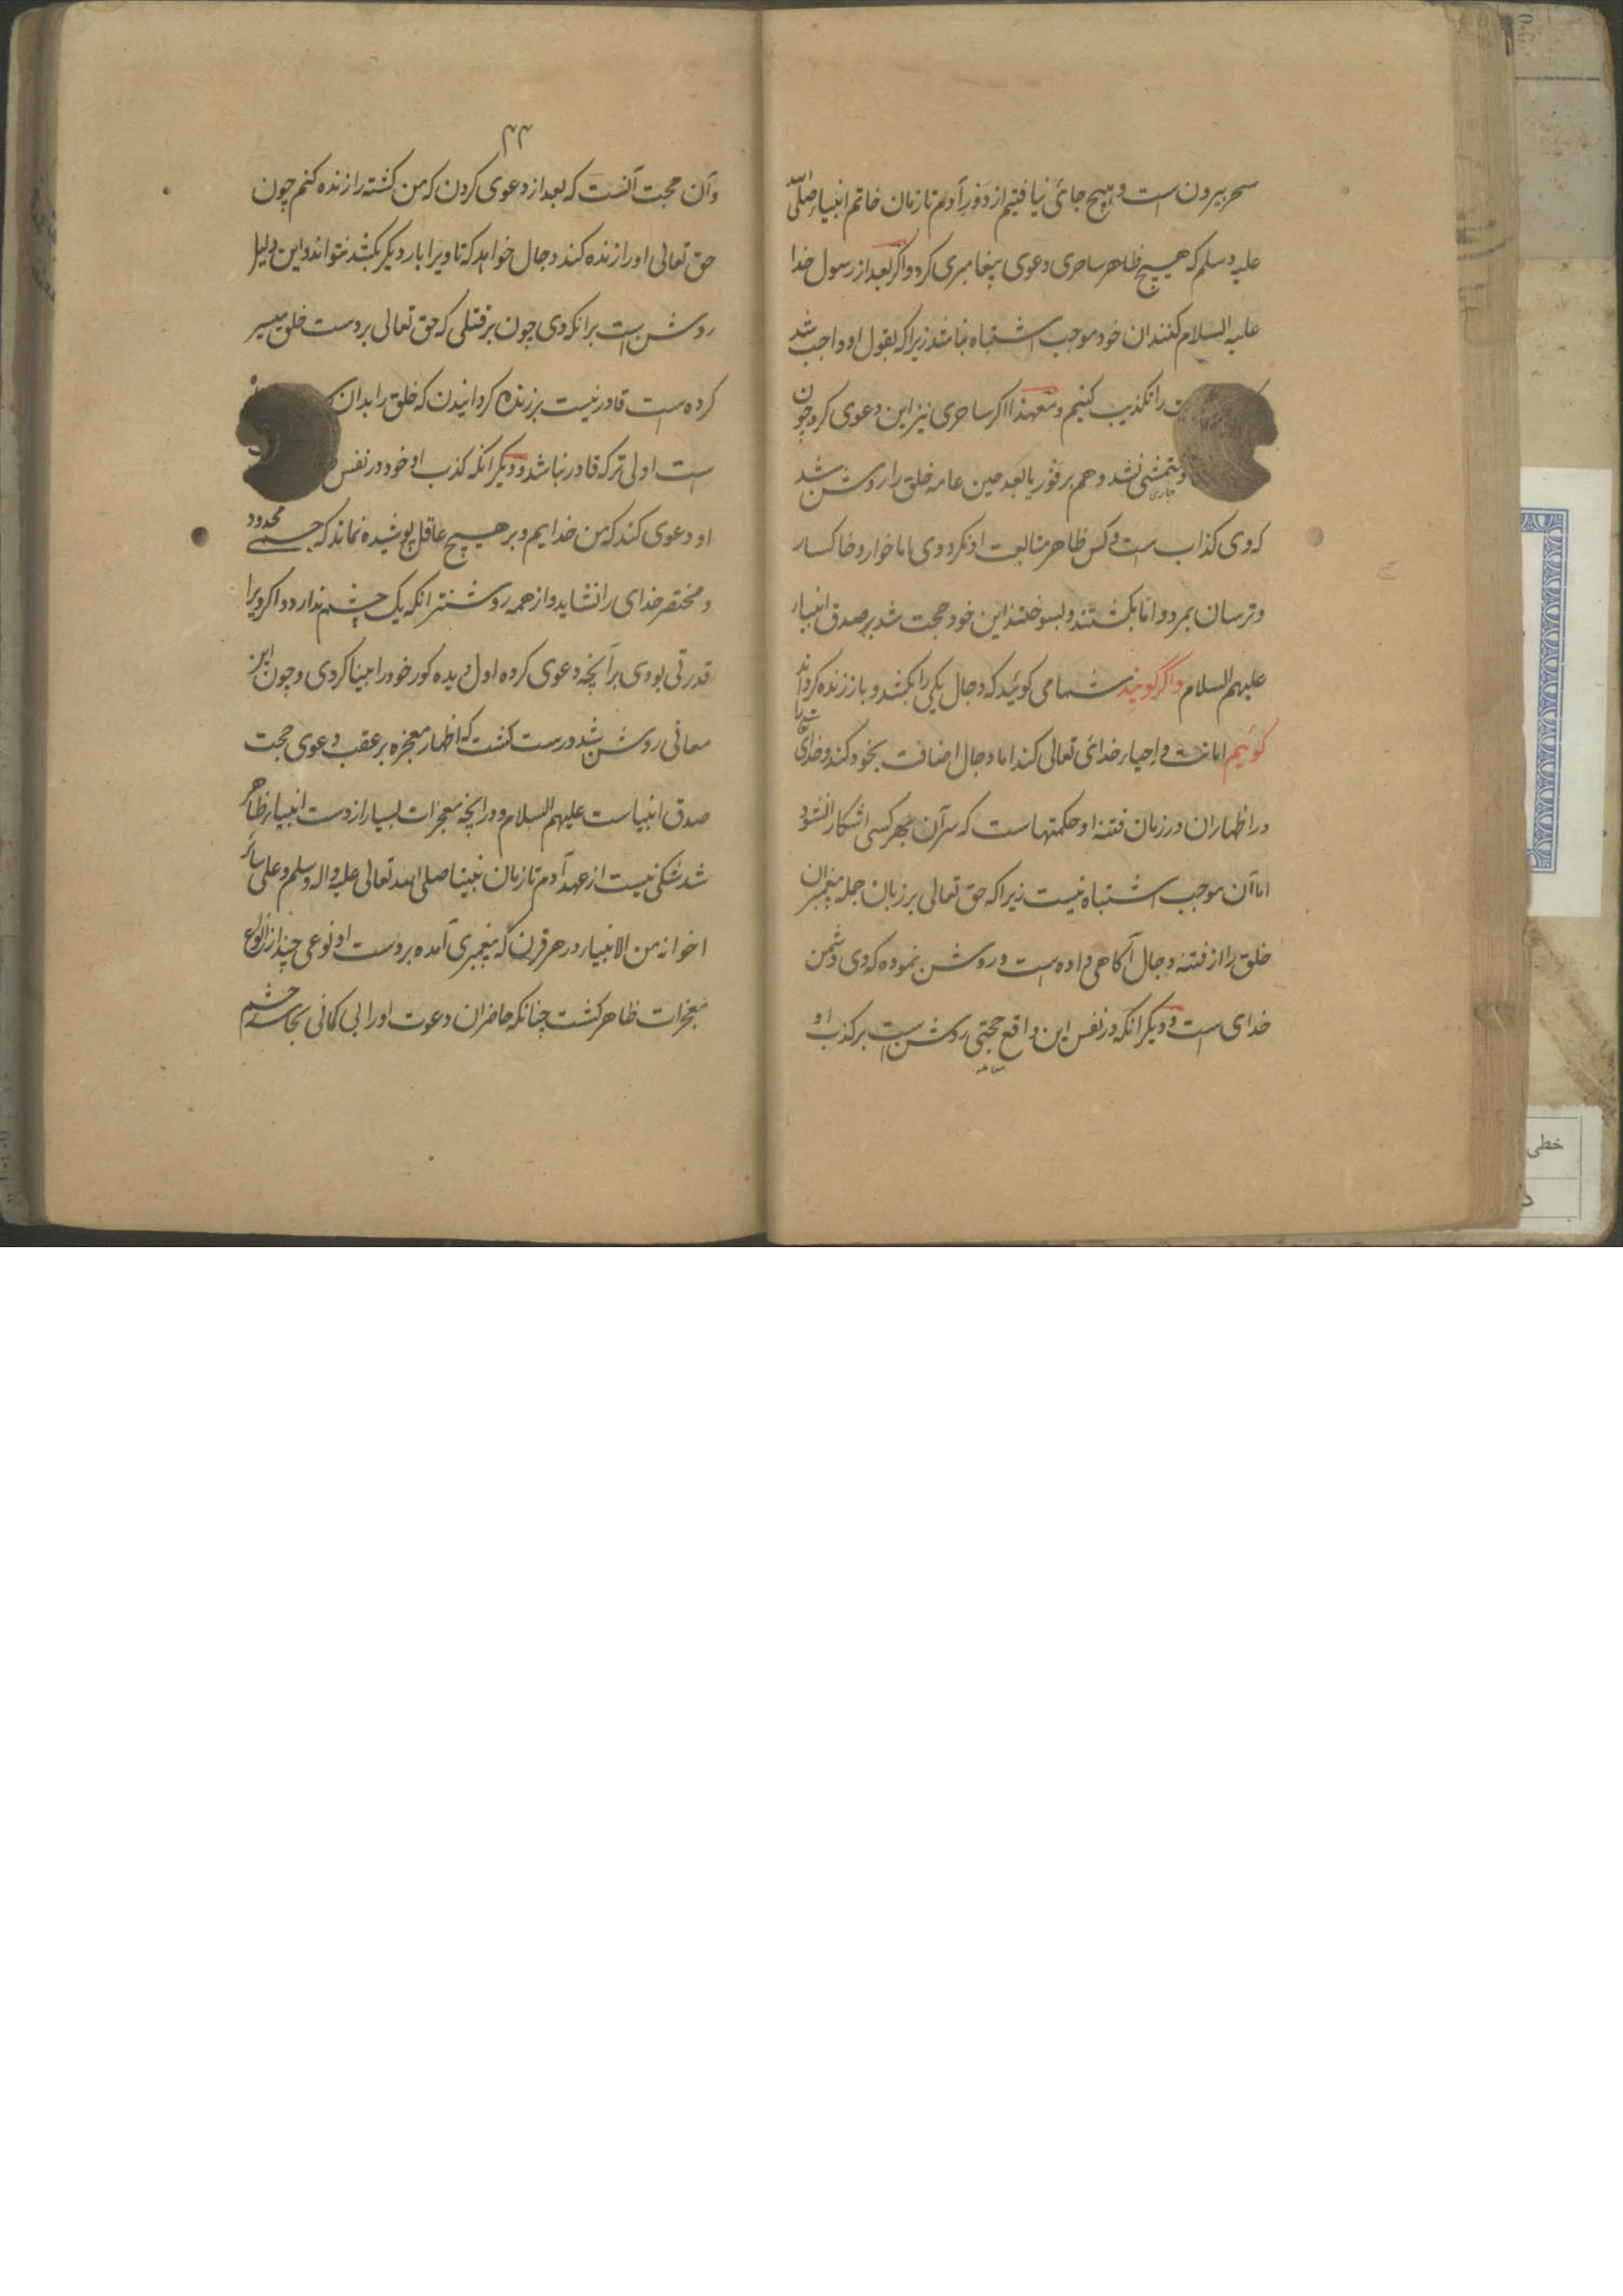 سحر بیرون است و هیچ جائی نیافتیم از دَورِ آدم تا زمان خاتم انبیاء صلی الله
علیه وسلم که هیچ ظاهر ساحری دعوی پیغامبری کرد و اکر بعد از رسول خدا
علیه السلام کنند ان خود موجب اشتباه نباشد زیرا که بقول او واجب شد
را تکذیب کنیم و معهذا اکر ساحری نیز این دعوی کرد چون
متمشی نشد و هم بر فور یا بعد حین عامه خلق را روشن شد
جاری
که وی کذاب است و کس ظاهر متابعت او نکرد و وی اما خوار و خاکسار
و ترسان بمرد و اما بکشتند و بسوختند این خود حجت شد بر صدق انبیاء
علیهم السلام واگر گویند شما می کوئید که دجال یکی را بکشد و باز زنده کرداند
کوئیم اماتت و احیاء خدای تعالی کند اما دجال اضافت بخود کند و خدای
در اظهار ان در زمان فتنه او حکمتهاست که سرّ آن بهر کسی اشکارا نشود
اما آن موجب اشتباه نیست زیرا که حق تعالی بر زبان جمله پیغمبران
خلق را از فتنه دجال آکاهی داده است و روشن نموده که وی دشمن
خدای است و دیکر انکه در نفس این واقع حجتی روشن است بر کذب او
معامله
۴۴
و آن حجت آنست که بعد از دعوی کردن که من کشته را زنده کنم چون
حق تعالی اورا زنده کند دجال خواهد که تا ویرا بار دیکر بکشد نتواند و این دلیل
روشن است برانکه وی چون بر قتلی که حق تعالی بر دست خلق میسر
کرده است قادر نیست بر زنده کردانیدن که خلق را بدان
است اولی تر که قادر نباشد و دیکر انکه کذب او خود در نفس
او دعوی کند که من خدایم و بر هیچ عاقل پوشیده نماند که جسمی محدود
و مختصر خدای را نشاید و از همه روشنتر انکه یک چشم ندارد و اکر ویرا
قدرتی بودی بر آنچه دعوی کرده اول دیده کور خود را بینا کردی و چون این
معانی روشن شد درست کشت که اظهار معجزه بر عقب دعوی حجت
صدق انبیاست علیهم السلام و در انچه معجزات بسیار از دست انبیاء ظاهر
شد شکی نیست از عهد آدم تا زمان نبینا صلی الله تعالی علیه واله وسلم وعلی سائر
اخوانه من الانبیاء و در هر قرن که پیغمبری آمده بر دست او نوعی چند از انواع
معجزات ظاهر کشت چنانکه حاضران دعوت اورا بی کمانی بحاسه چشم
خطی